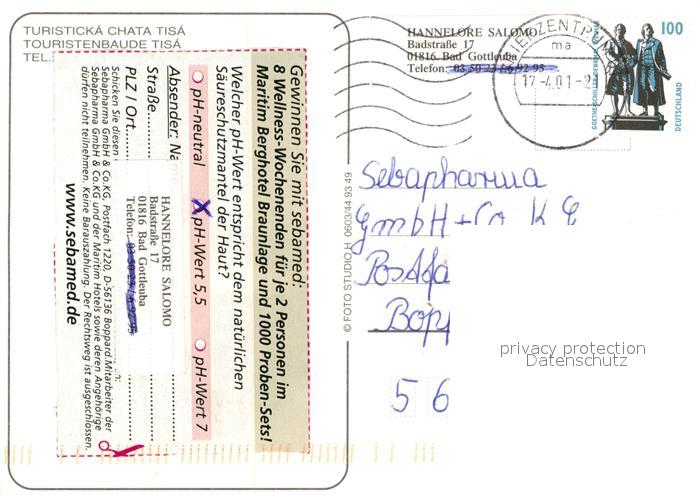 TURISTICKÁ CHATA TISÁ
TOURISTENBAUDE TISÁ
TEL.:
Gewinnen Sie mit sebamed:
8 Wellness-Wochenenden für je 2 Personen im
Maritim Berghotel Braunlage und 1000 Proben-Sets!
Welcher pH-Wert entspricht dem natürlichen
Säureschutzmantel der Haut?
pH-neutral X pH-Wert 5,5 pH-Wert 7
Absender: Na
Straße
PLZ / Ort
HANNELORE SALOMO
Badstraße 17
01816 Bad Gottleuba
Telefon: 03 50 23 / 6 92 95
Schicken Sie diesen
Sebapharma GmbH & Co.KG, Postfach 1220, D-56136 Boppard. Mitarbeiter der
Sebapharma GmbH & Co.KG und der Maritim Hotels sowie deren Angehörige
dürfen nicht teilnehmen. Keine Barauszahlung. Der Rechtsweg ist ausgeschlossen.
www.sebamed.de
HANNELORE SALOMO
Badstraße 17
01816 Bad Gottleuba
Telefon: 03 50 23 / 6 92 95
IEFZENTRUM
ma
17-4.01-2
100
DEUTSCHLAND
© FOTO STUDIO H 0603/44 93 49
Sebapharma
GmbH + Co K G
Postfa
Bopp
5 6
privacy protection
Datenschutz